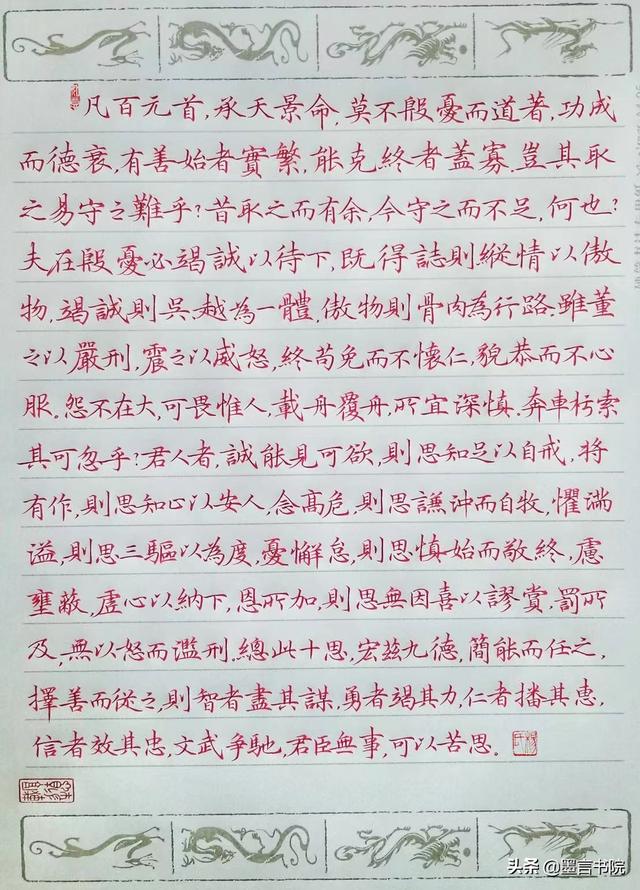 凡百元首,承天景命,莫不殷憂而道著,功成
而德衰,有善始者實繁,能克終者蓋寡.豈其取
之易守之難乎?昔取之而有余,今守之而不足,何也?
夫在殷憂必竭誠以待下,既得誌則縱情以傲
物,竭誠則吳越為一體,傲物則骨肉為行路.雖董
之以嚴刑,震之以威怒,終苟免而不懷仁,貌恭而不心
服.怨不在大,可畏惟人,載舟覆舟,所宜深慎.奔車朽索
其可忽乎?君人者,誠能見可欲,則思知足以自戒,將
有作,則思知心以安人,念高危,則思謙沖而自牧,懼滿
溢,則思三驅以為度,憂懈怠,則思慎始而敬終,慮
壅蔽,虛心以納下,恩所加,則思無因喜以謬賞,罰所
及,無以怒而濫刑.總此十思,宏茲九德,簡能而任之,
擇善而從之,則智者盡其謀,勇者竭其力,仁者播其惠,
信者效其忠,文武爭馳,君臣無事,可以苦思。
头条 @墨言书院